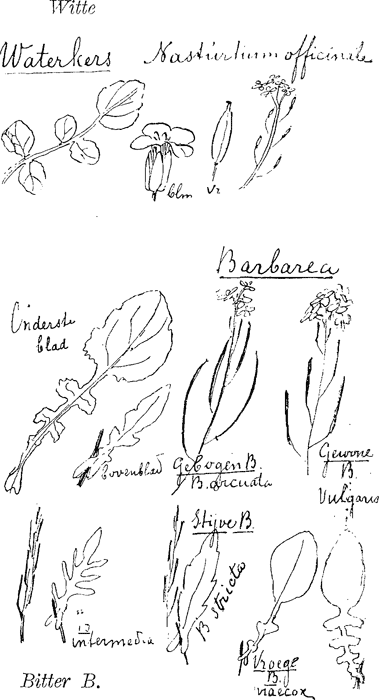 Witte
Waterkers Nasturtium officinale
blm
vr
Barbarea
Onderste
blad
bovenblad
Gebogen B.
B. arcuata
Gewone
B.
Vulgaris
Stijve B.
B stricta
intermedia
Vroege
B.
Bitter B.